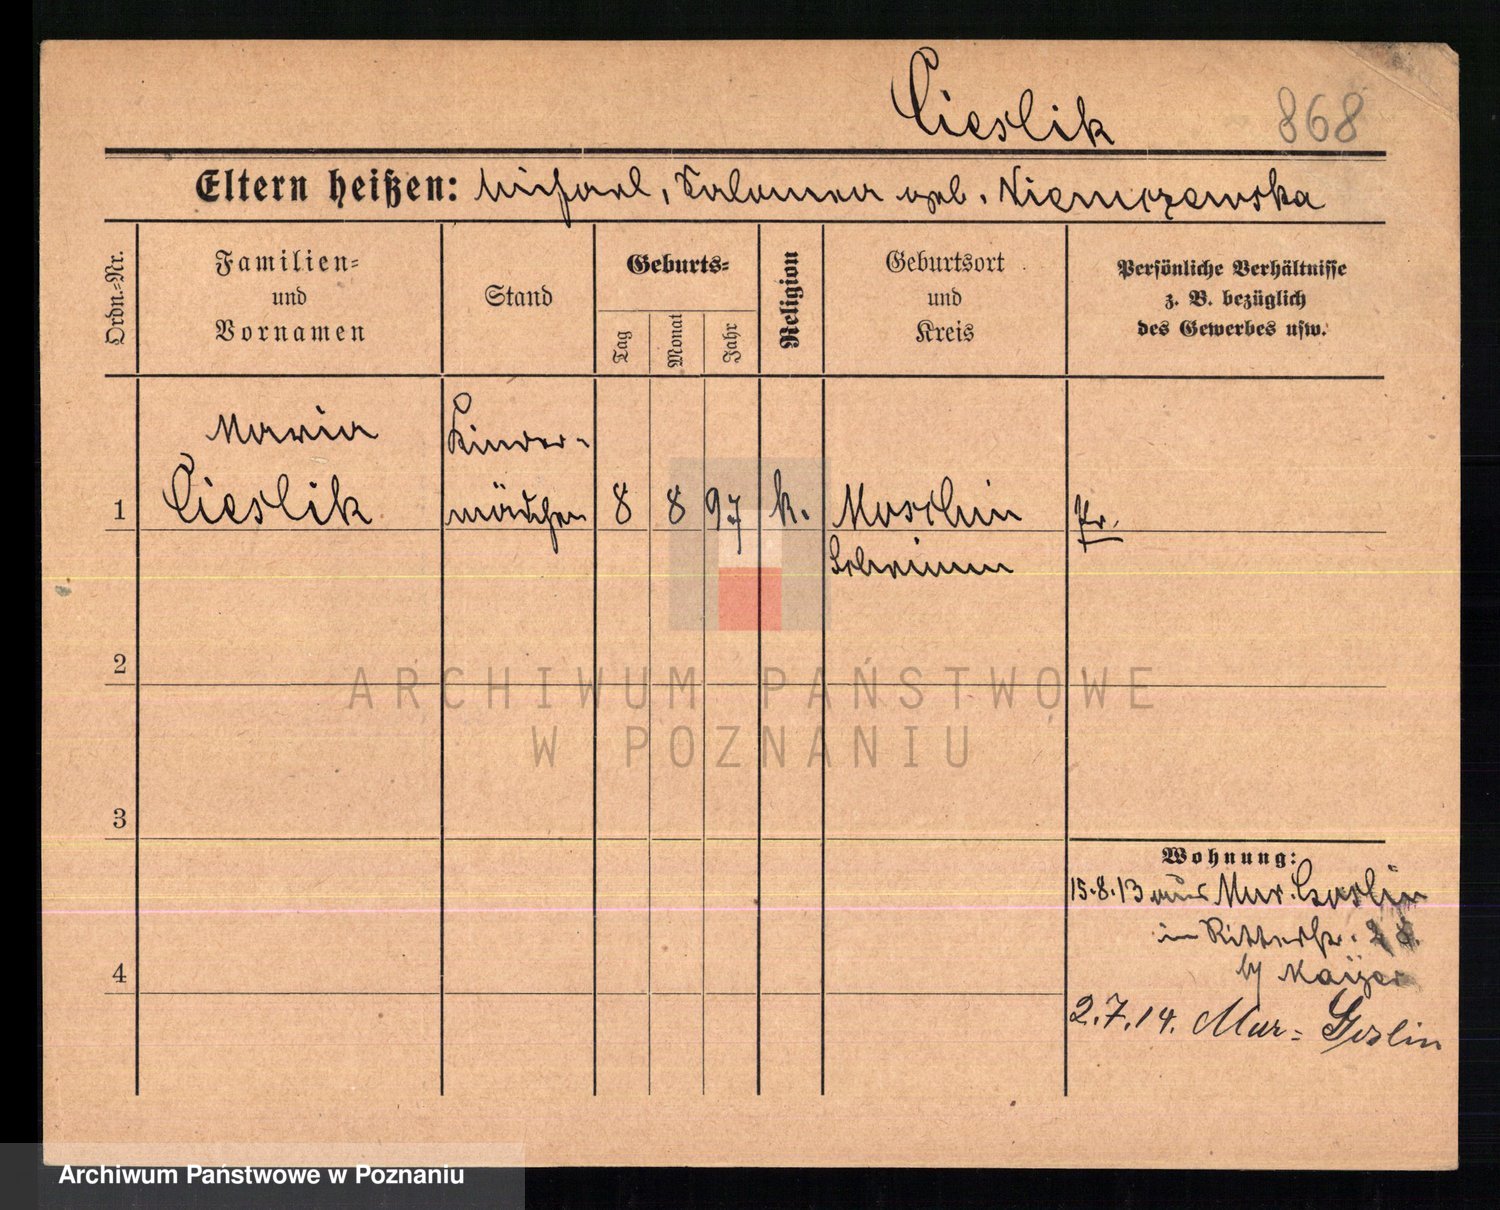 Cieslik 868
Eltern heißen: Michael, Salomea geb. Niemczewska
Ordn.-Nr.
Familien-
und
Vornamen
Stand
Geburts-
Tag
Monat
Jahr
Religion
Geburtsort
und
Kreis
Persönliche Verhältnisse
z. B. bezüglich
des Gewerbes usw.
Maria Kinder-
1 Cieslik mädchen 8 8 97 k. Moschin Pr.
Schrimm
2
ARCHIWUM PAŃSTWOWE
W POZNANIU
3
Wohnung:
15.8.13 aus Mur. Goslin
in Ritterstr.
by Kaiser
4
2.7.14. Mur- Goslin
Archiwum Państwowe w Poznaniu